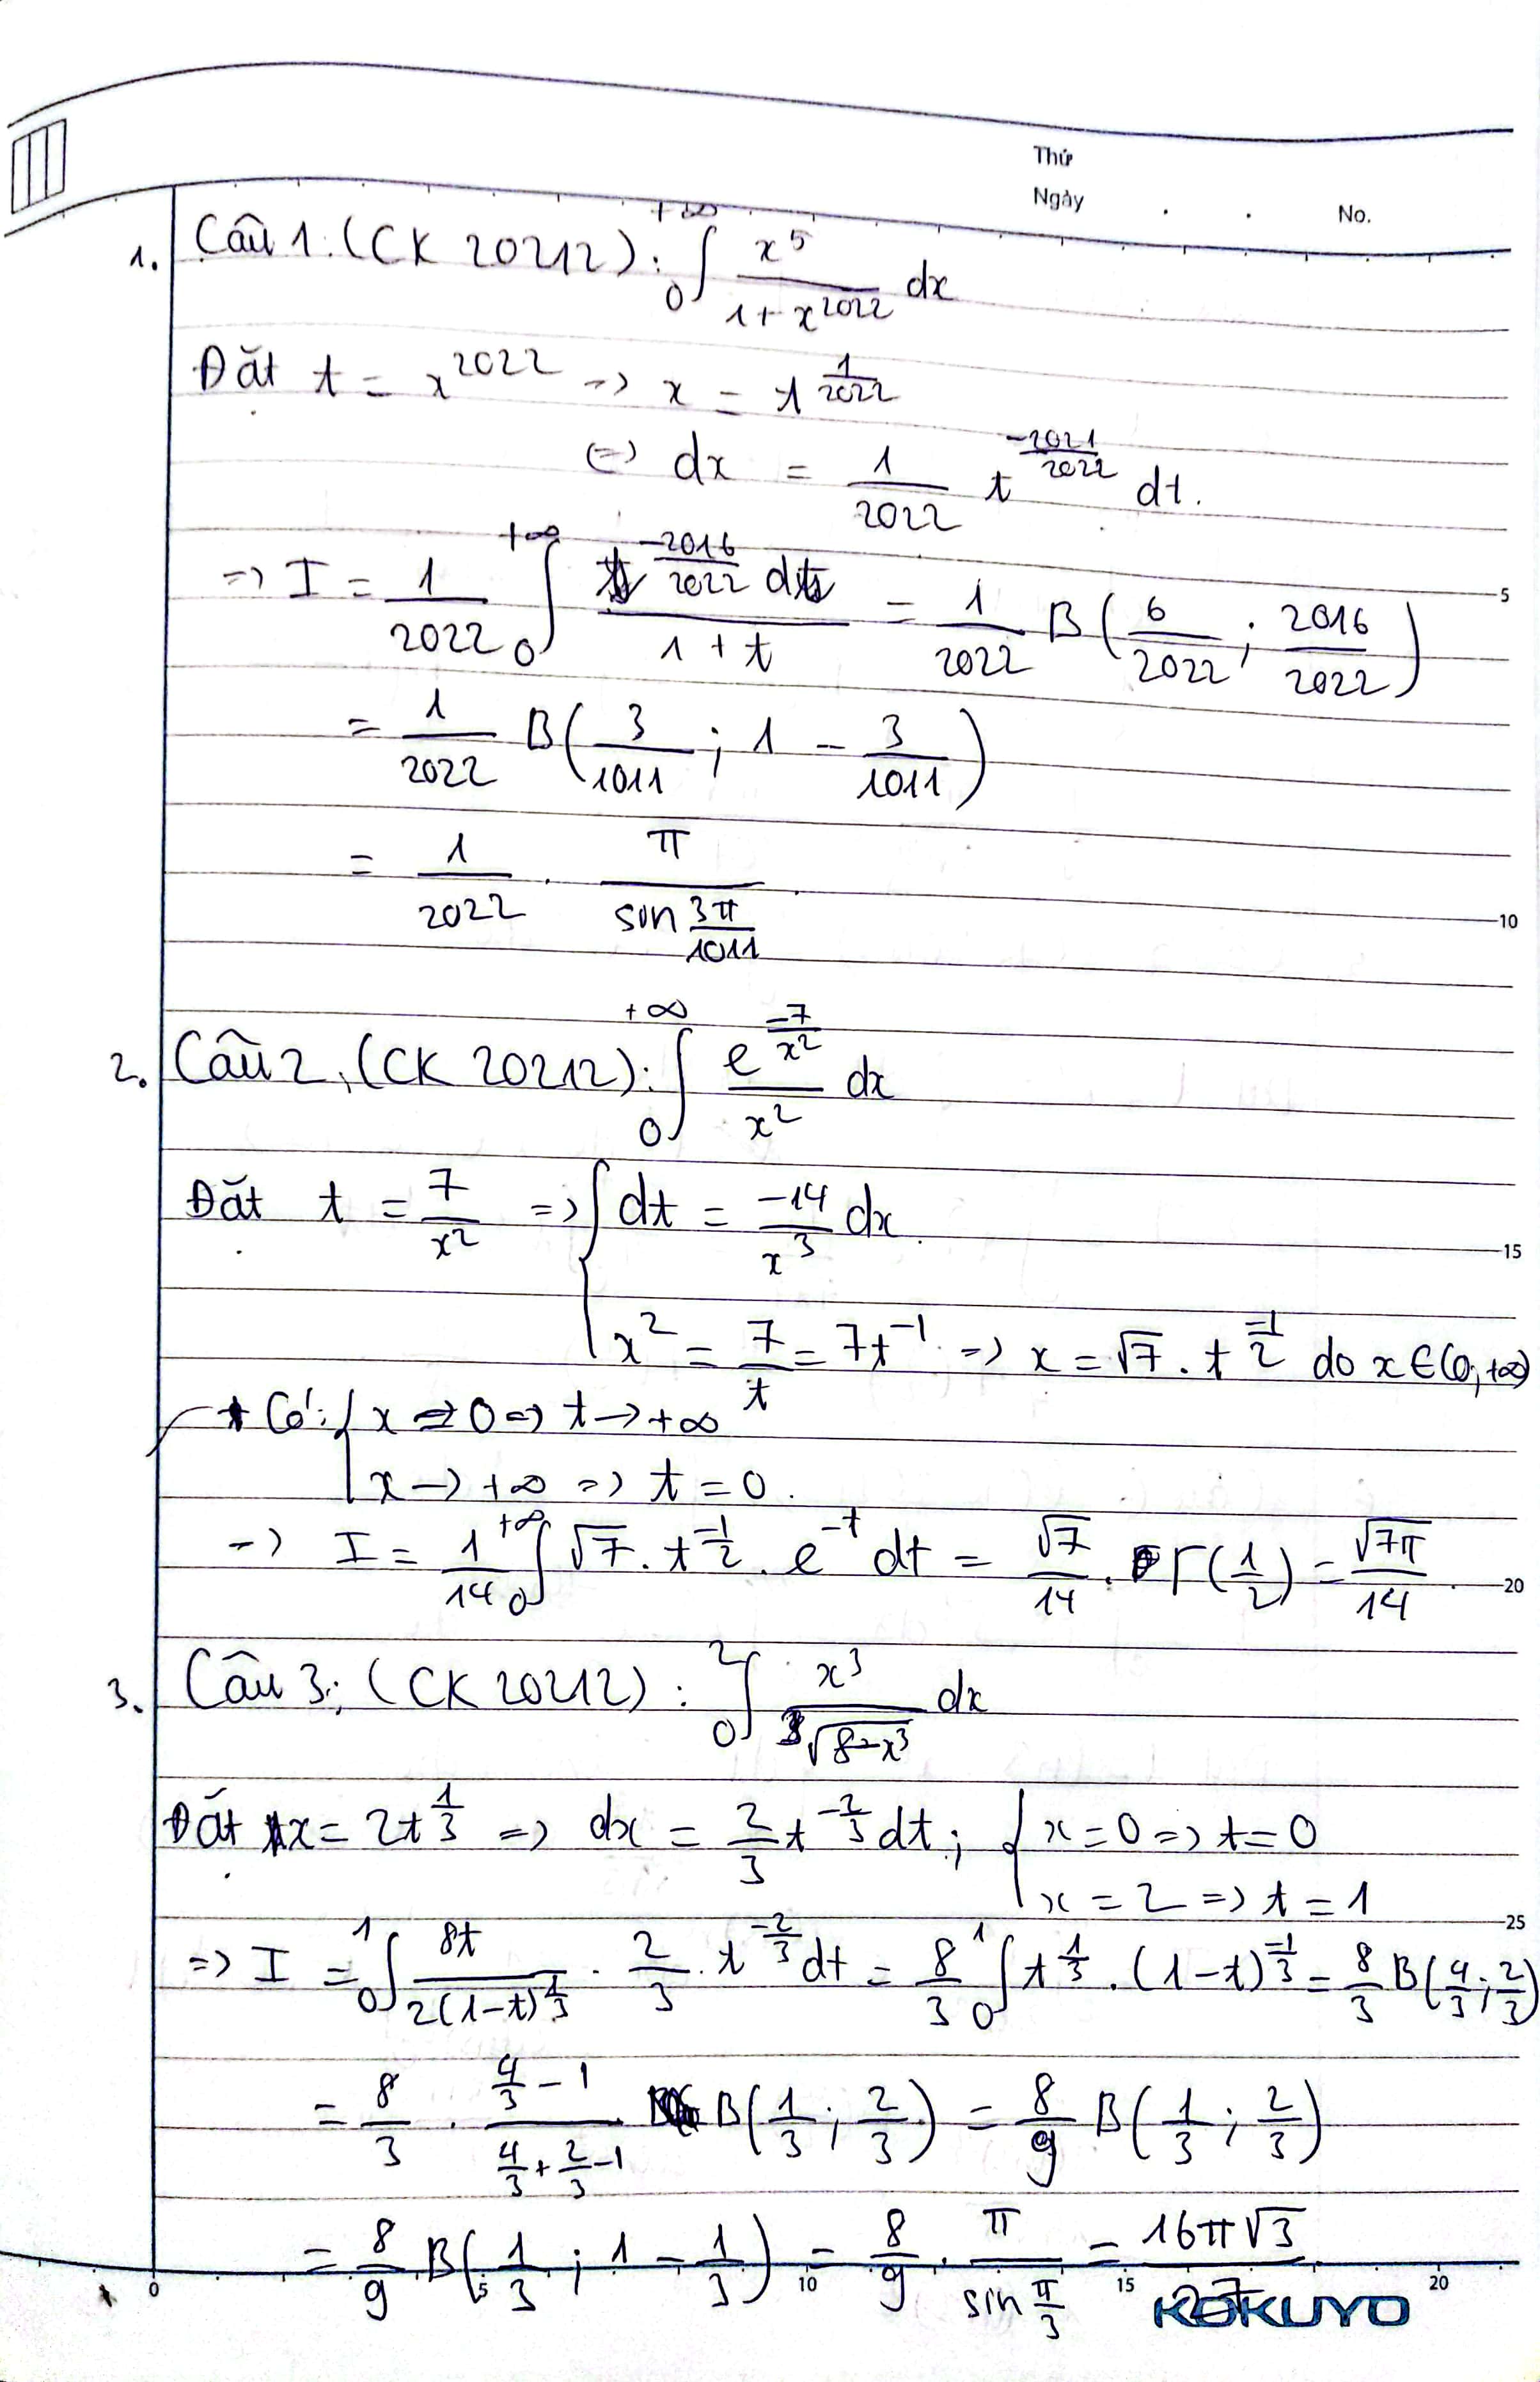 Thứ
Ngày . . No.
1. Câu 1: (CK 20212): ∫₀^{+∞} x^5/(1+x^{2022}) dx
Đặt t = x^{2022} => x = t^{1/2022}
<=> dx = 1/2022 t^{-2021/2022} dt.
=> I = 1/2022 ∫₀^{+∞} t^{-2016/2022} dt/(1+t) = 1/2022 B(6/2022; 2016/2022)
5
= 1/2022 B(3/1011; 1 - 3/1011)
= 1/2022 . π/(sin 3π/1011)
10
2. Câu 2, (CK 20212): ∫₀^{+∞} e^{-7/x^2}/x^2 dx
Đặt t = 7/x^2 => { dt = -14/x^3 dx
15
x^2 = 7/t = 7t^{-1} => x = √7 . t^{-1/2} do x ∈ (0,+∞)
* Có: { x → 0 => t → +∞
x → +∞ => t = 0.
=> I = 1/14 ∫₀^{+∞} √7 . t^{-1/2} . e^{-t} dt = √7/14 . Γ(1/2) = √(7π)/14
20
3. Câu 3: (CK 20212): ∫₀² x^3/∛(8-x^3) dx
Đặt x = 2t^{1/3} => dx = 2/3 t^{-2/3} dt; { x = 0 => t = 0
x = 2 => t = 1
25
=> I = ∫₀¹ 8t/(2(1-t)^{1/3}) . 2/3 . t^{-2/3} dt = 8/3 ∫₀¹ t^{1/3} . (1-t)^{-1/3} = 8/3 B(4/3; 2/3)
= 8/3 . (4/3 - 1)/(4/3 + 2/3 - 1) B(1/3; 2/3) = 8/9 B(1/3; 2/3)
= 8/9 B(1/3; 1 - 1/3) = 8/9 . π/(sin π/3) = 16π√3/27
0 5 10 15 20
KOKUYO